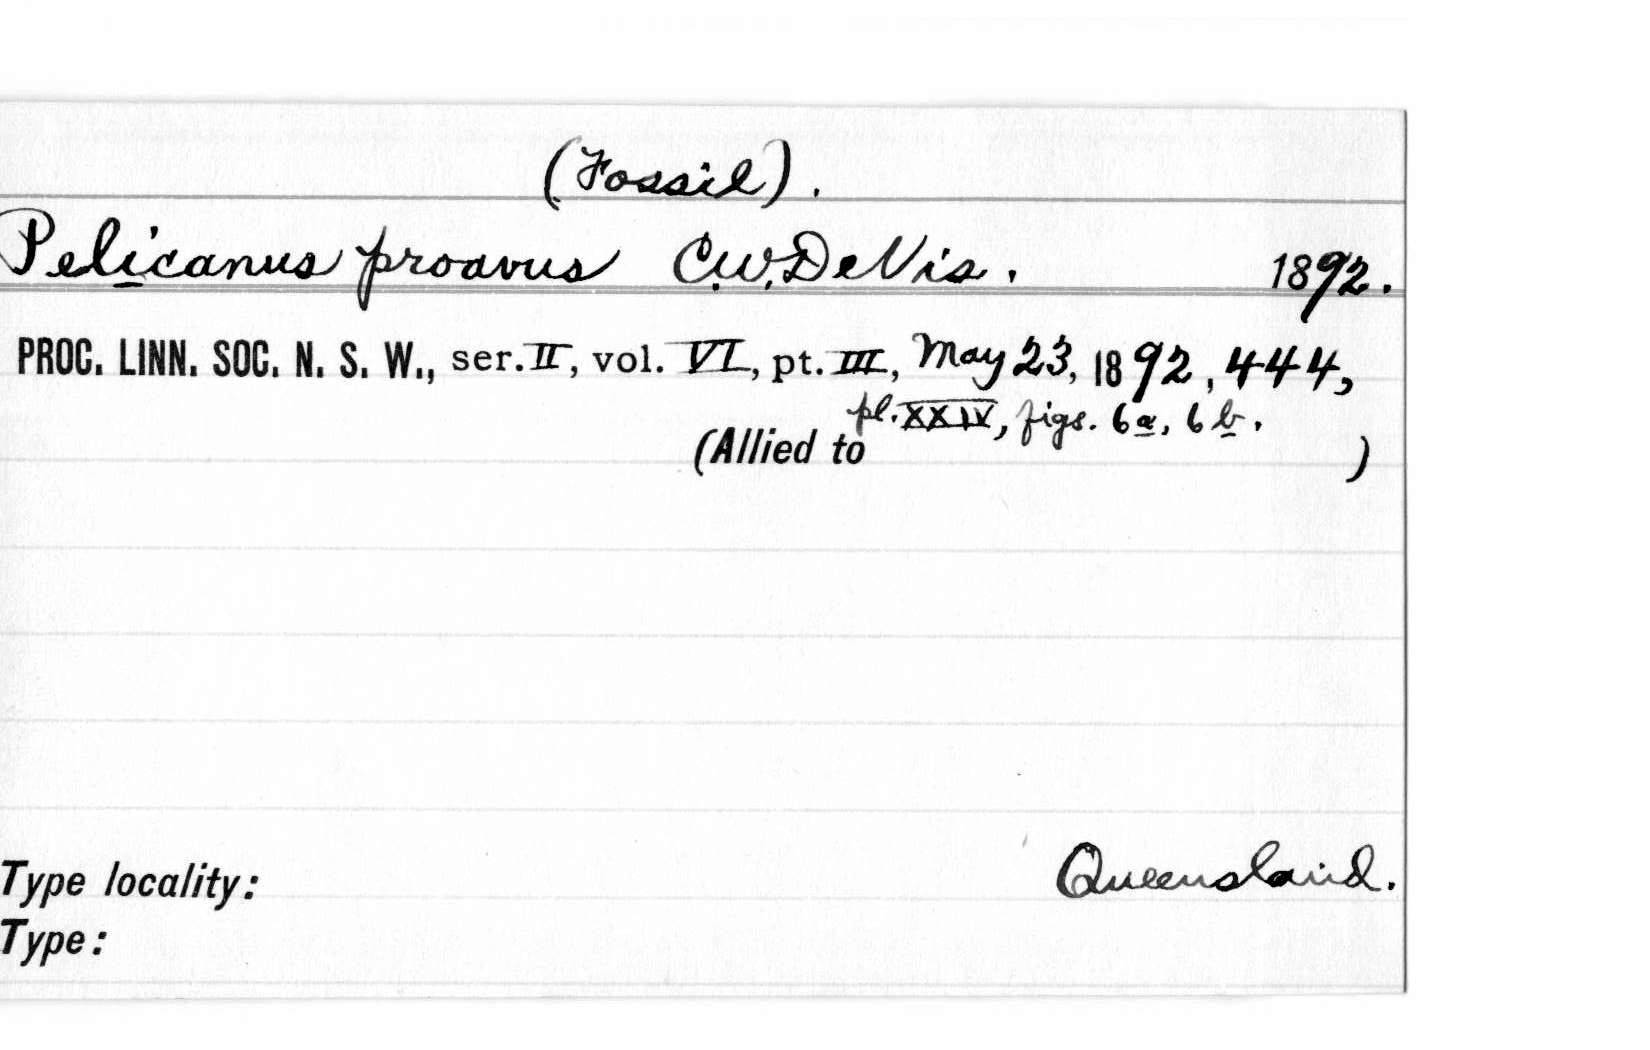 (Fossil).
Pelicanus proavus C.W.DeVis. 1892.
PROC. LINN. SOC. N. S. W., ser. II, vol. VI, pt. III, May 23, 1892, 444,
pl. XXIV, figs. 6a, 6b.
(Allied to )
Type locality: Queensland.
Type: